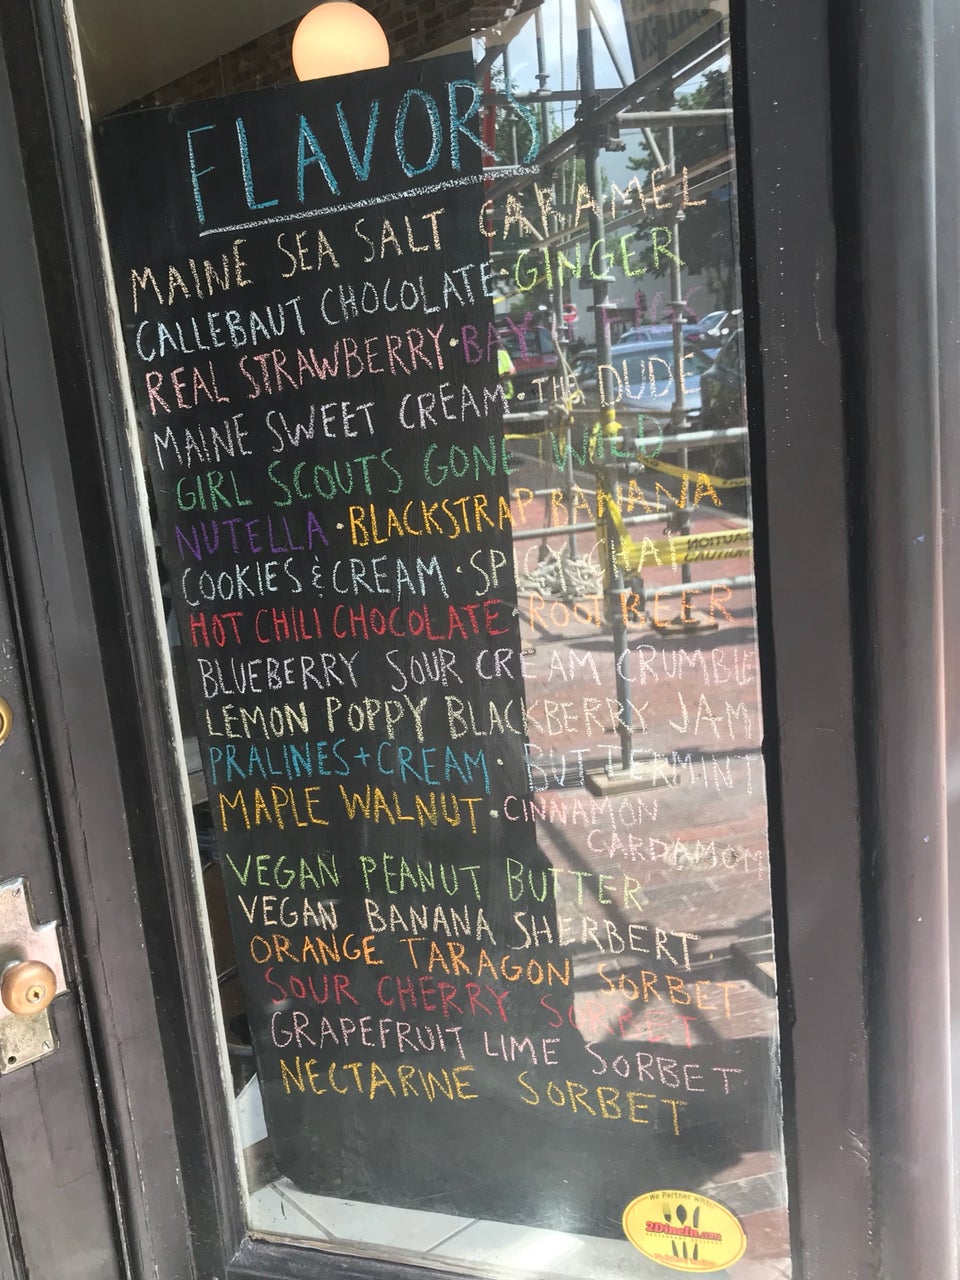 FLAVORS
MAINE SEA SALT CARAMEL
CALLEBAUT CHOCOLATE · GINGER
REAL STRAWBERRY · BAY
MAINE SWEET CREAM · THE DUDE
GIRL SCOUTS GONE WILD
NUTELLA · BLACKSTRAP BANANA
COOKIES & CREAM · SPICY CHAI
HOT CHILI CHOCOLATE · ROOT BEER
BLUEBERRY SOUR CREAM CRUMBLE
LEMON POPPY BLACKBERRY JAM
PRALINES + CREAM · BUTTERMINT
MAPLE WALNUT · CINNAMON
CARDAMOM
VEGAN PEANUT BUTTER
VEGAN BANANA SHERBERT.
ORANGE TARAGON SORBET
SOUR CHERRY SORBET
GRAPEFRUIT LIME SORBET
NECTARINE SORBET
We Partner With
2DineIn.com
RESTAURANT DELIVERY